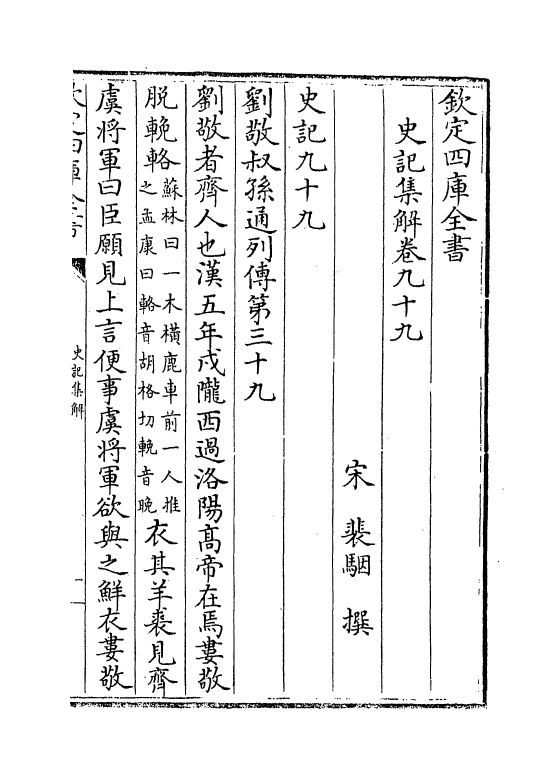 欽定四庫全書
史記集解卷九十九
宋 裴駰 撰
史記九十九
劉敬叔孫通列傳第三十九
劉敬者齊人也漢五年戍隴西過洛陽髙帝在焉婁敬
脱輓輅蘇林曰一木橫鹿車前一人推之孟康曰輅音胡格切輓音晚衣其羊裘見齊
虞將軍曰臣願見上言便事虞將軍欲與之鮮衣婁敬
欽定四庫全書
史記集解